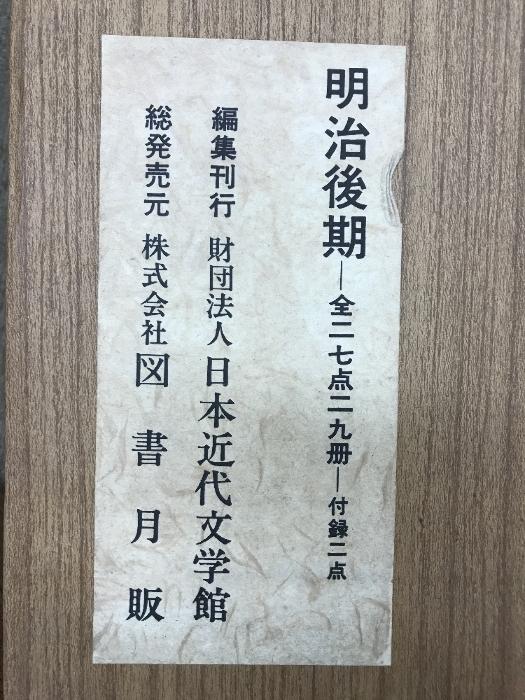 明治後期―全二七点二九冊―付録二点
編集刊行 財団法人日本近代文学館
総発売元 株式会社図書月販